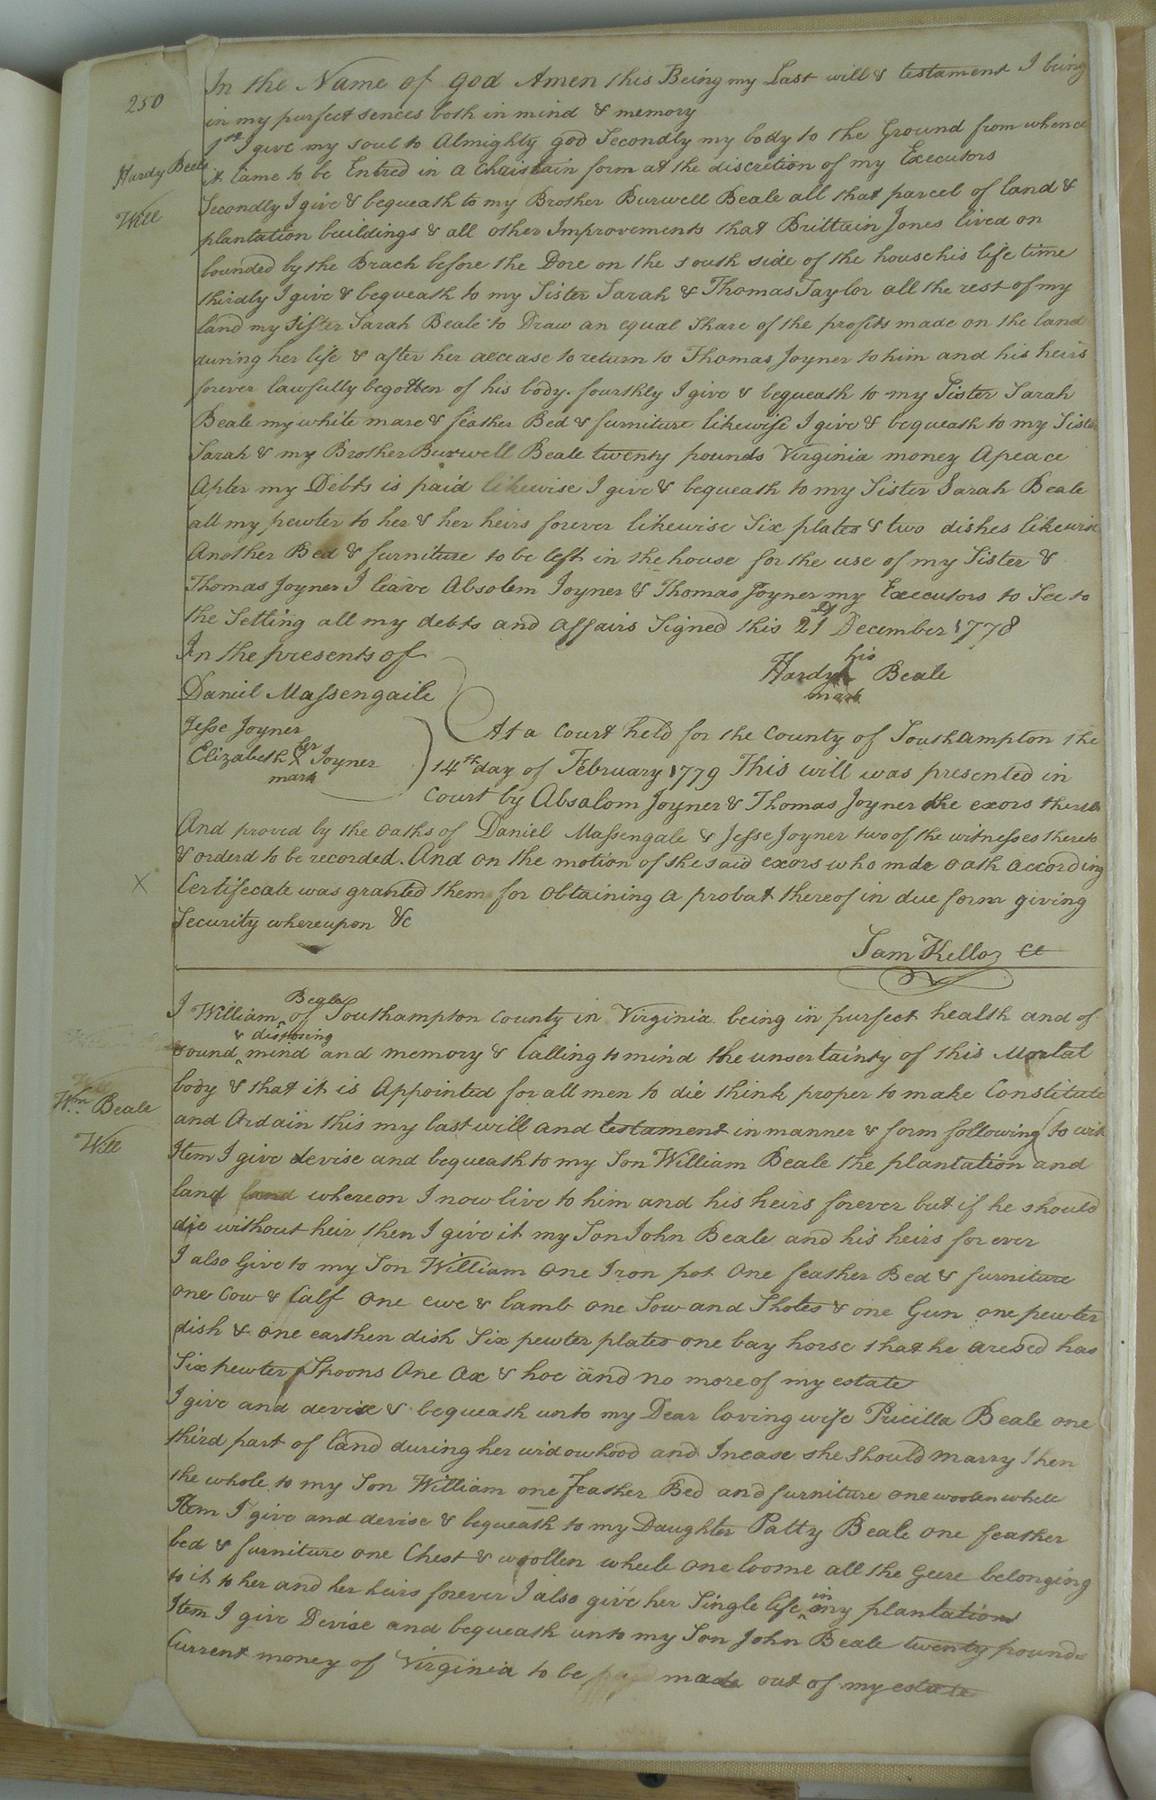 250
Hardy Beels
Will
In the Name of god Amen this Being my Last will & testament I being
in my purfect sences both in mind & memory
1st I give my soul to Almighty god Secondly my body to the Ground from whence
it came to be Entred in a Christain form at the discretion of my Executors
Secondly I give & bequeath to my Brother Burwell Beale all that parcel of land &
plantation buildings & all other Improvements that Brittain Jones lived on
bounded by the Brach before the Dore on the south side of the house his life time
thirdly I give & bequeath to my Sister Sarah & Thomas Taylor all the rest of my
land my Sister Sarah Beale to Draw an equal Share of the profits made on the land
during her life & after her decease to return to Thomas Joyner to him and his heirs
forever lawfully begotten of his body. fourthly I give & bequeath to my Sister Sarah
Beale my white mare & feather Bed & furniture likewise I give & bequeath to my Sister
Sarah & my Brother Burwell Beale twenty pounds Virginia money Apeace
Apter my Debts is paid likewise I give & bequeath to my Sister Sarah Beale
all my pewter to her & her heirs forever likewise Six plates & two dishes likewise
Another Bed & furniture to be left in the house for the use of my Sister &
Thomas Joyner I leave Absolem Joyner & Thomas Joyner my Executors to See to
the Setling all my debts and affairs Signed this 21st December 1778
In the presents of
his
Hardy Beale
mark
Daniel Massengaile
Jesse Joyner
her
Elizabeth X Joyner
mark
At a Court held for the County of Southampton the
14th day of February 1779 This will was presented in
Court by Absalom Joyner & Thomas Joyner the exors thereof
And proved by the oaths of Daniel Massengale & Jesse Joyner two of the witnesses thereto
& orderd to be recorded. And on the motion of the said exors who mde oath according
X
Certifecate was granted them for obtaining a probat thereof in due form giving
Security whereupon &c
Sam Kello Cl
Wm Beale
Will
Begla
I William of Southampton County in Virginia being in purfect health and of
& disposing
sound mind and memory & Calling to mind the unsertainty of this Mortal
body & that it is Appointed for all men to die think proper to make Constitute
and Ordain this my last will and testament in manner & form following to wit
Item I give devise and bequeath to my Son William Beale the plantation and
land land whereon I now live to him and his heirs forever but if he should
die without heir then I give it my Son John Beale and his heirs for ever
I also Give to my Son William One Iron pot One feather Bed & furniture
one Cow & Calf One ewe & lamb one Sow and Shotes & one Gun one pewter
dish & one earthen dish Six pewter plates one bay horse that he aresed has
Six pewter Spoons One Ax & hoe and no more of my estate
I give and devise & bequeath unto my Dear loving wife Pricilla Beale one
third part of land during her widowhood and Incase she should marry then
the whole to my Son William one Feather Bed and furniture one woolen whele
Item I give and devise & bequeath to my Daughter Patty Beale one feather
bed & furniture one Chest & woollen wheele one loome all the Geere belonging
to it to her and her heirs forever I also give her Single life in my plantation
Item I give Devise and bequeath unto my Son John Beale twenty pounds
Current money of Virginia to be made out of my estate